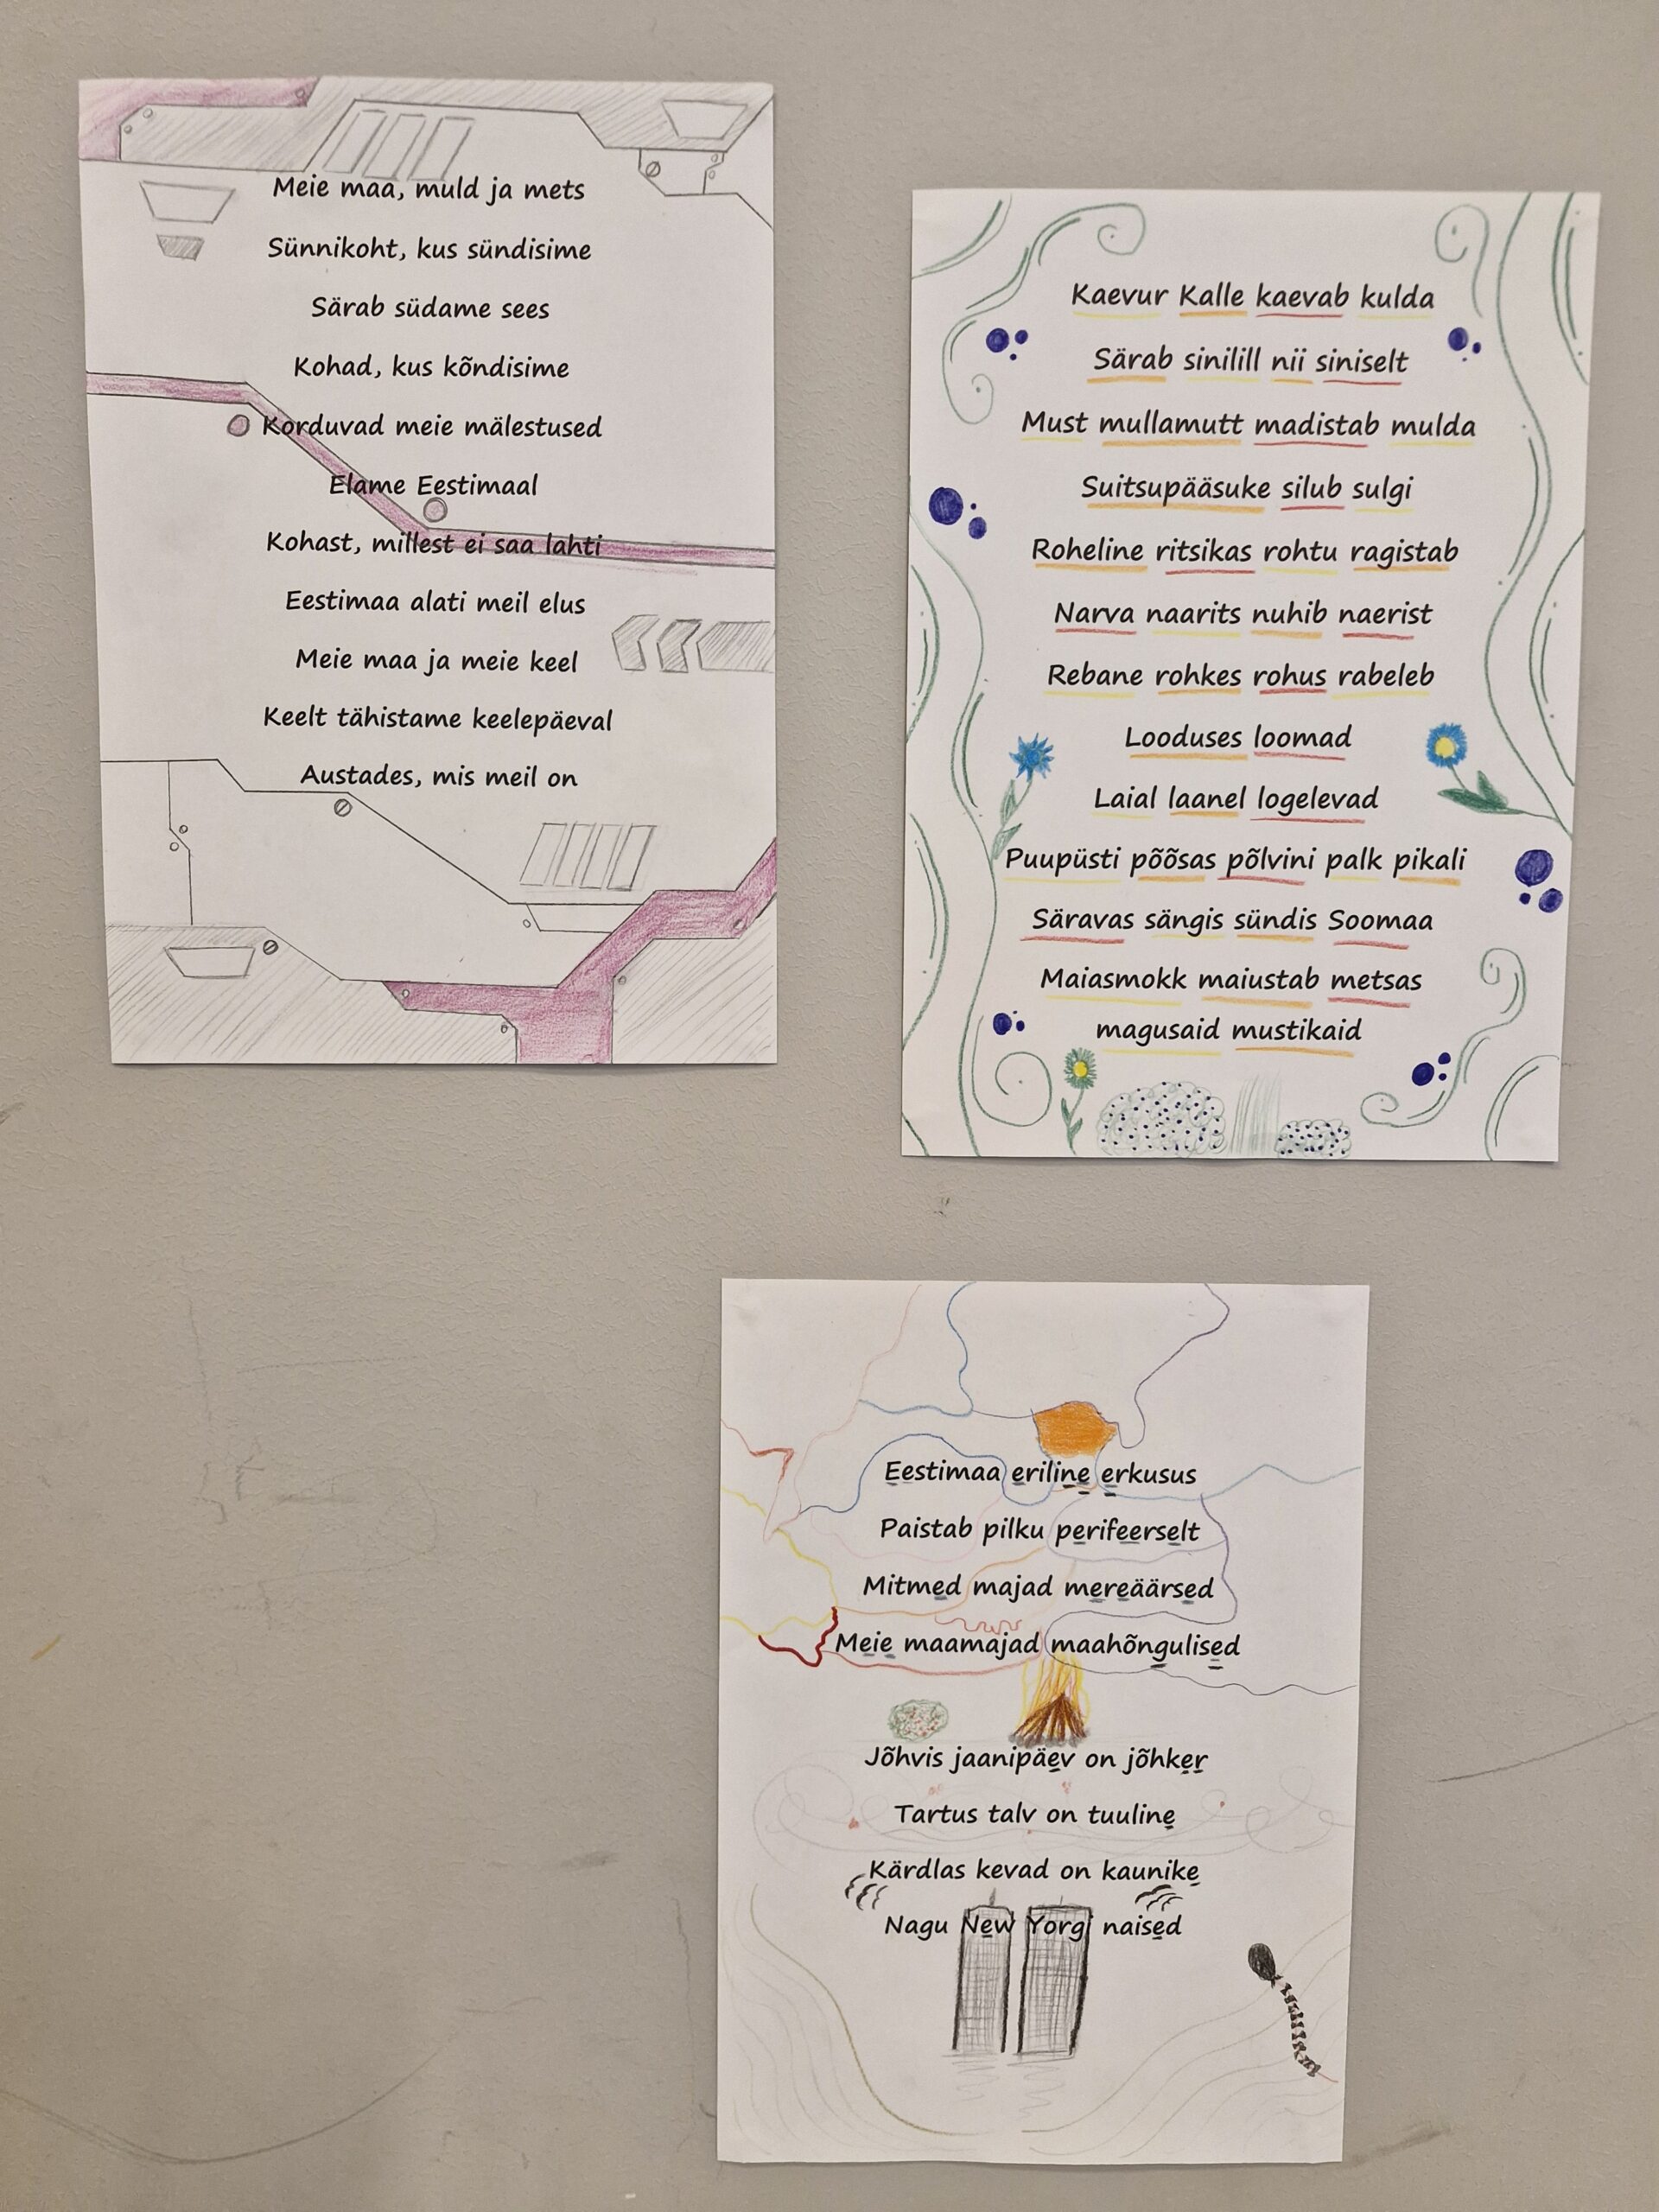 Meie maa, muld ja mets
Sünnikoht, kus sündisime
Särab südame sees
Kohad, kus kõndisime
Korduvad meie mälestused
Elame Eestimaal
Kohast, millest ei saa lahti
Eestimaa alati meil elus
Meie maa ja meie keel
Keelt tähistame keelepäeval
Austades, mis meil on
Kaevur Kalle kaevab kulda
Särab sinilill nii siniselt
Must mullamutt madistab mulda
Suitsupääsuke silub sulgi
Roheline ritsikas rohtu ragistab
Narva naarits nuhib naerist
Rebane rohkes rohus rabeleb
Looduses loomad
Laial laanel logelevad
Puupüsti põõsas põlvini palk pikali
Säravas sängis sündis Soomaa
Maiasmokk maiustab metsas
magusaid mustikaid
Eestimaa eriline erkusus
Paistab pilku perifeerselt
Mitmed majad mereäärsed
Meie maamajad maahõngulised
Jõhvis jaanipäev on jõhker
Tartus talv on tuuline
Kärdlas kevad on kaunike
Nagu New Yorgi naised